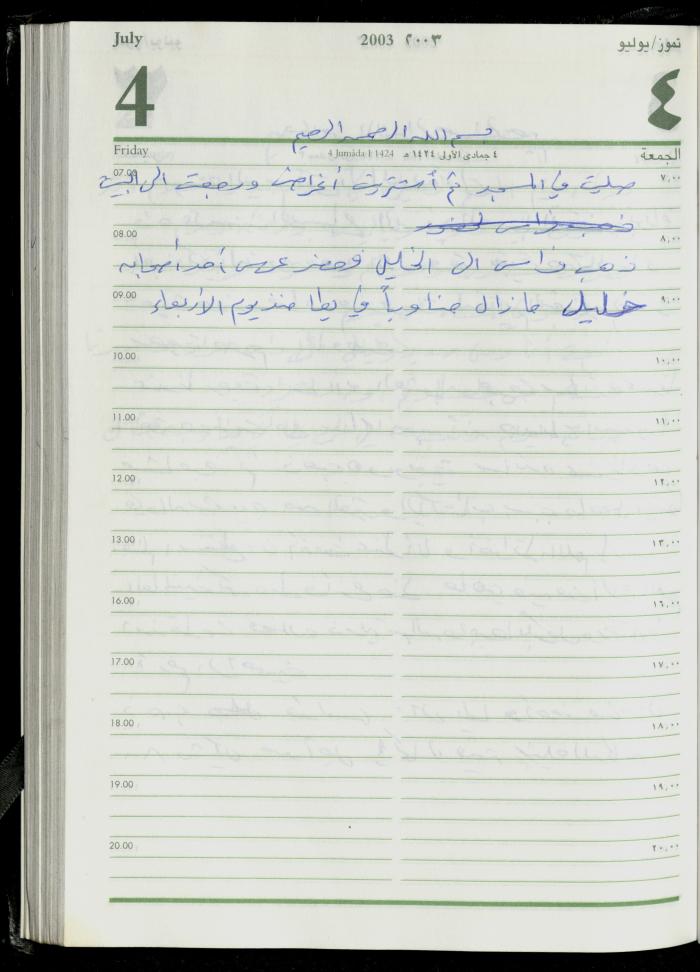 July 2003 ٢٠٠٣ تموز/يوليو
4 ٤
بسم الله الرحمن الرحيم
Friday 4 Jumada I 1424 ٤ جمادى الأولى ١٤٢٤ هـ الجمعة
07.00 ٧,٠٠
صليت في المسجد ثم أشتريت أغراض ورجعت الى البيت
ذهب فراس لحضور
08.00 ٨,٠٠
ذهب فراس الى الخليل فحضر عرس أحد أصحابه
09.00 ٩,٠٠
خليل مازال مناوباً في يطا منذ يوم الأربعاء
10.00 ١٠,٠٠
11.00 ١١,٠٠
12.00 ١٢,٠٠
13.00 ١٣,٠٠
16.00 ١٦,٠٠
17.00 ١٧,٠٠
18.00 ١٨,٠٠
19.00 ١٩,٠٠
20.00 ٢٠,٠٠